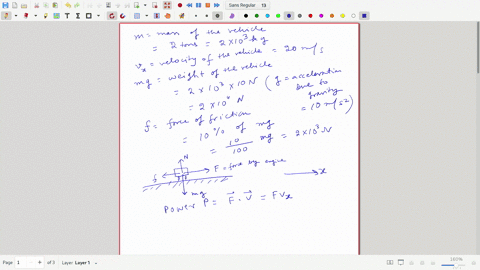 Sans Regular 13
m = mass of the vehicle
= 2 tons = 2×10³ kg
vx = velocity of the vehicle = 20 m/s
mg = weight of the vehicle
= 2×10³×10N (g = acceleration due to gravity = 10 m/s²)
= 2×10⁴ N
f = force of friction
= 10% of mg
= 10/100 mg = 2×10³ N
N
f F = force by engine x
mg
Power P = F⃗ · V⃗ = Fvx
Page 1 of 3 Layer Layer 1